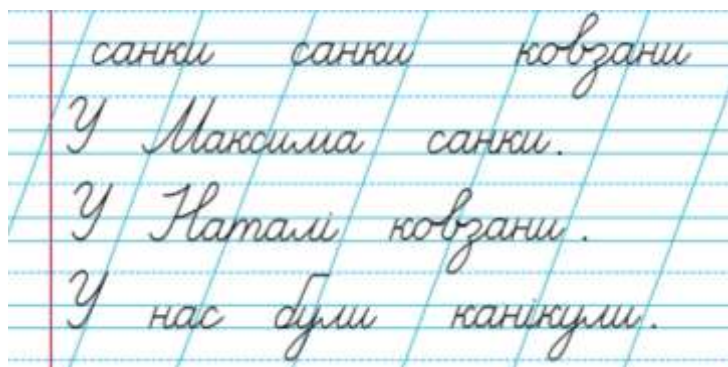 санки санки ковзани
У Максима санки.
У Наталі ковзани.
У нас були канікули.